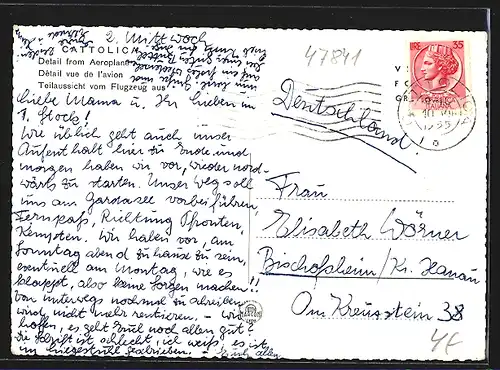 2. Mittwoch
CATTOLICA
Detail from Aeroplane
Détail vue de l'avion
Teilaussicht vom Flugzeug aus
Liebe Mama u. Ihr Lieben im
1. Stock!
Wie üblich geht auch unser
Aufenthalt hier zu Ende und
morgen haben wir vor, wieder nord-
wärts zu starten. Unser Weg soll
uns am Gardasee vorbeiführen,
Fernpaß, Richtung Pfronten,
Kempten. Wir haben vor, am
Sonntag abend zu hause zu sein,
eventuell am Montag, wie es
klappt, also keine Sorgen machen!!
Von unterwegs nochmal zu schreiben
wird nicht mehr rentieren. – Wir
hoffen, es geht Euch noch allen gut?
Die Schrift ist schlecht, ich weiß, es ist
im Liegestuhl geschrieben. – Euch allen
47841
LIRE 35
Deutschland!
Frau
Elisabeth Wörner
Bischofsheim/Kr. Hanau
Am Kreusstein 38
4E